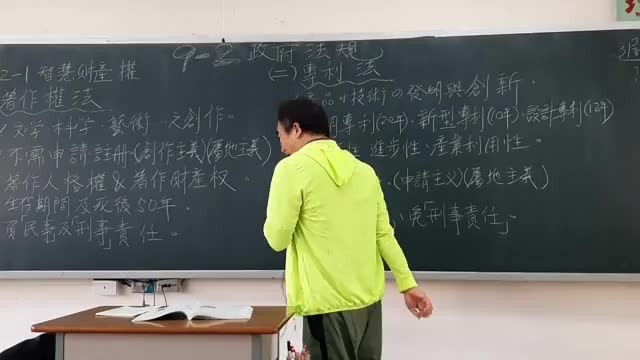 9-2 政府法規
2-1 智慧財產權
著作權法
文字 科学、藝術…之創作。
不需申請註冊(創作主義)(屬地主義)
著作人格權 & 著作財產权.
生存期間及死後50年.
負民事及「刑事責任。
(二)專利法
技術の發明與創新.
明專利(20年).新型專利(10年).設計專利(12年)
性.進步性.產業利用性.
.(申請主义)(屬地主義)
免「刑事責任」。